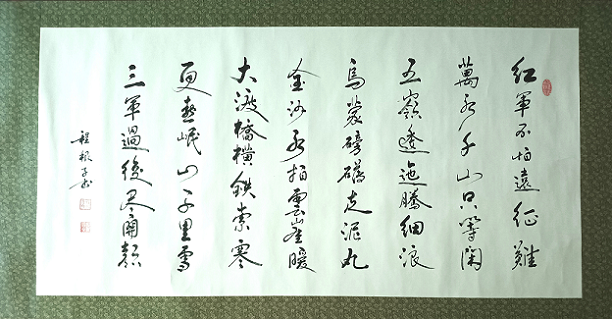 紅軍不怕遠征難
萬水千山只等閑
五嶺逶迤騰細浪
烏蒙磅礴走泥丸
金沙水拍雲崖暖
大渡橋橫鉄索寒
更喜岷山千里雪
三軍過後尽開顏
程根子书